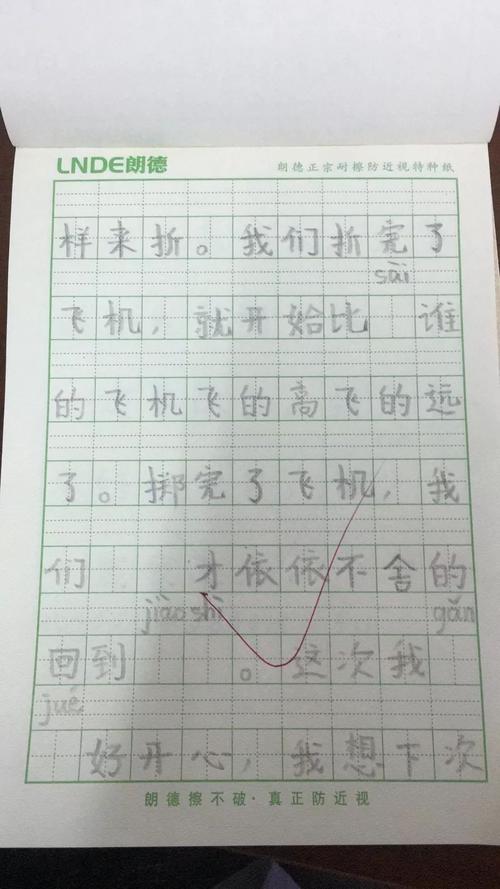 LNDE朗德 朗德正宗耐擦防近视特种纸
样来折。我们折完了
sāi
飞机，就开始比 谁
的飞机飞的高飞的远
了。掷完了飞机，我
们 才依依不舍的
jiào shì gǎn
回到 。这次我
jué
好开心，我想下次
朗德擦不破·真正防近视